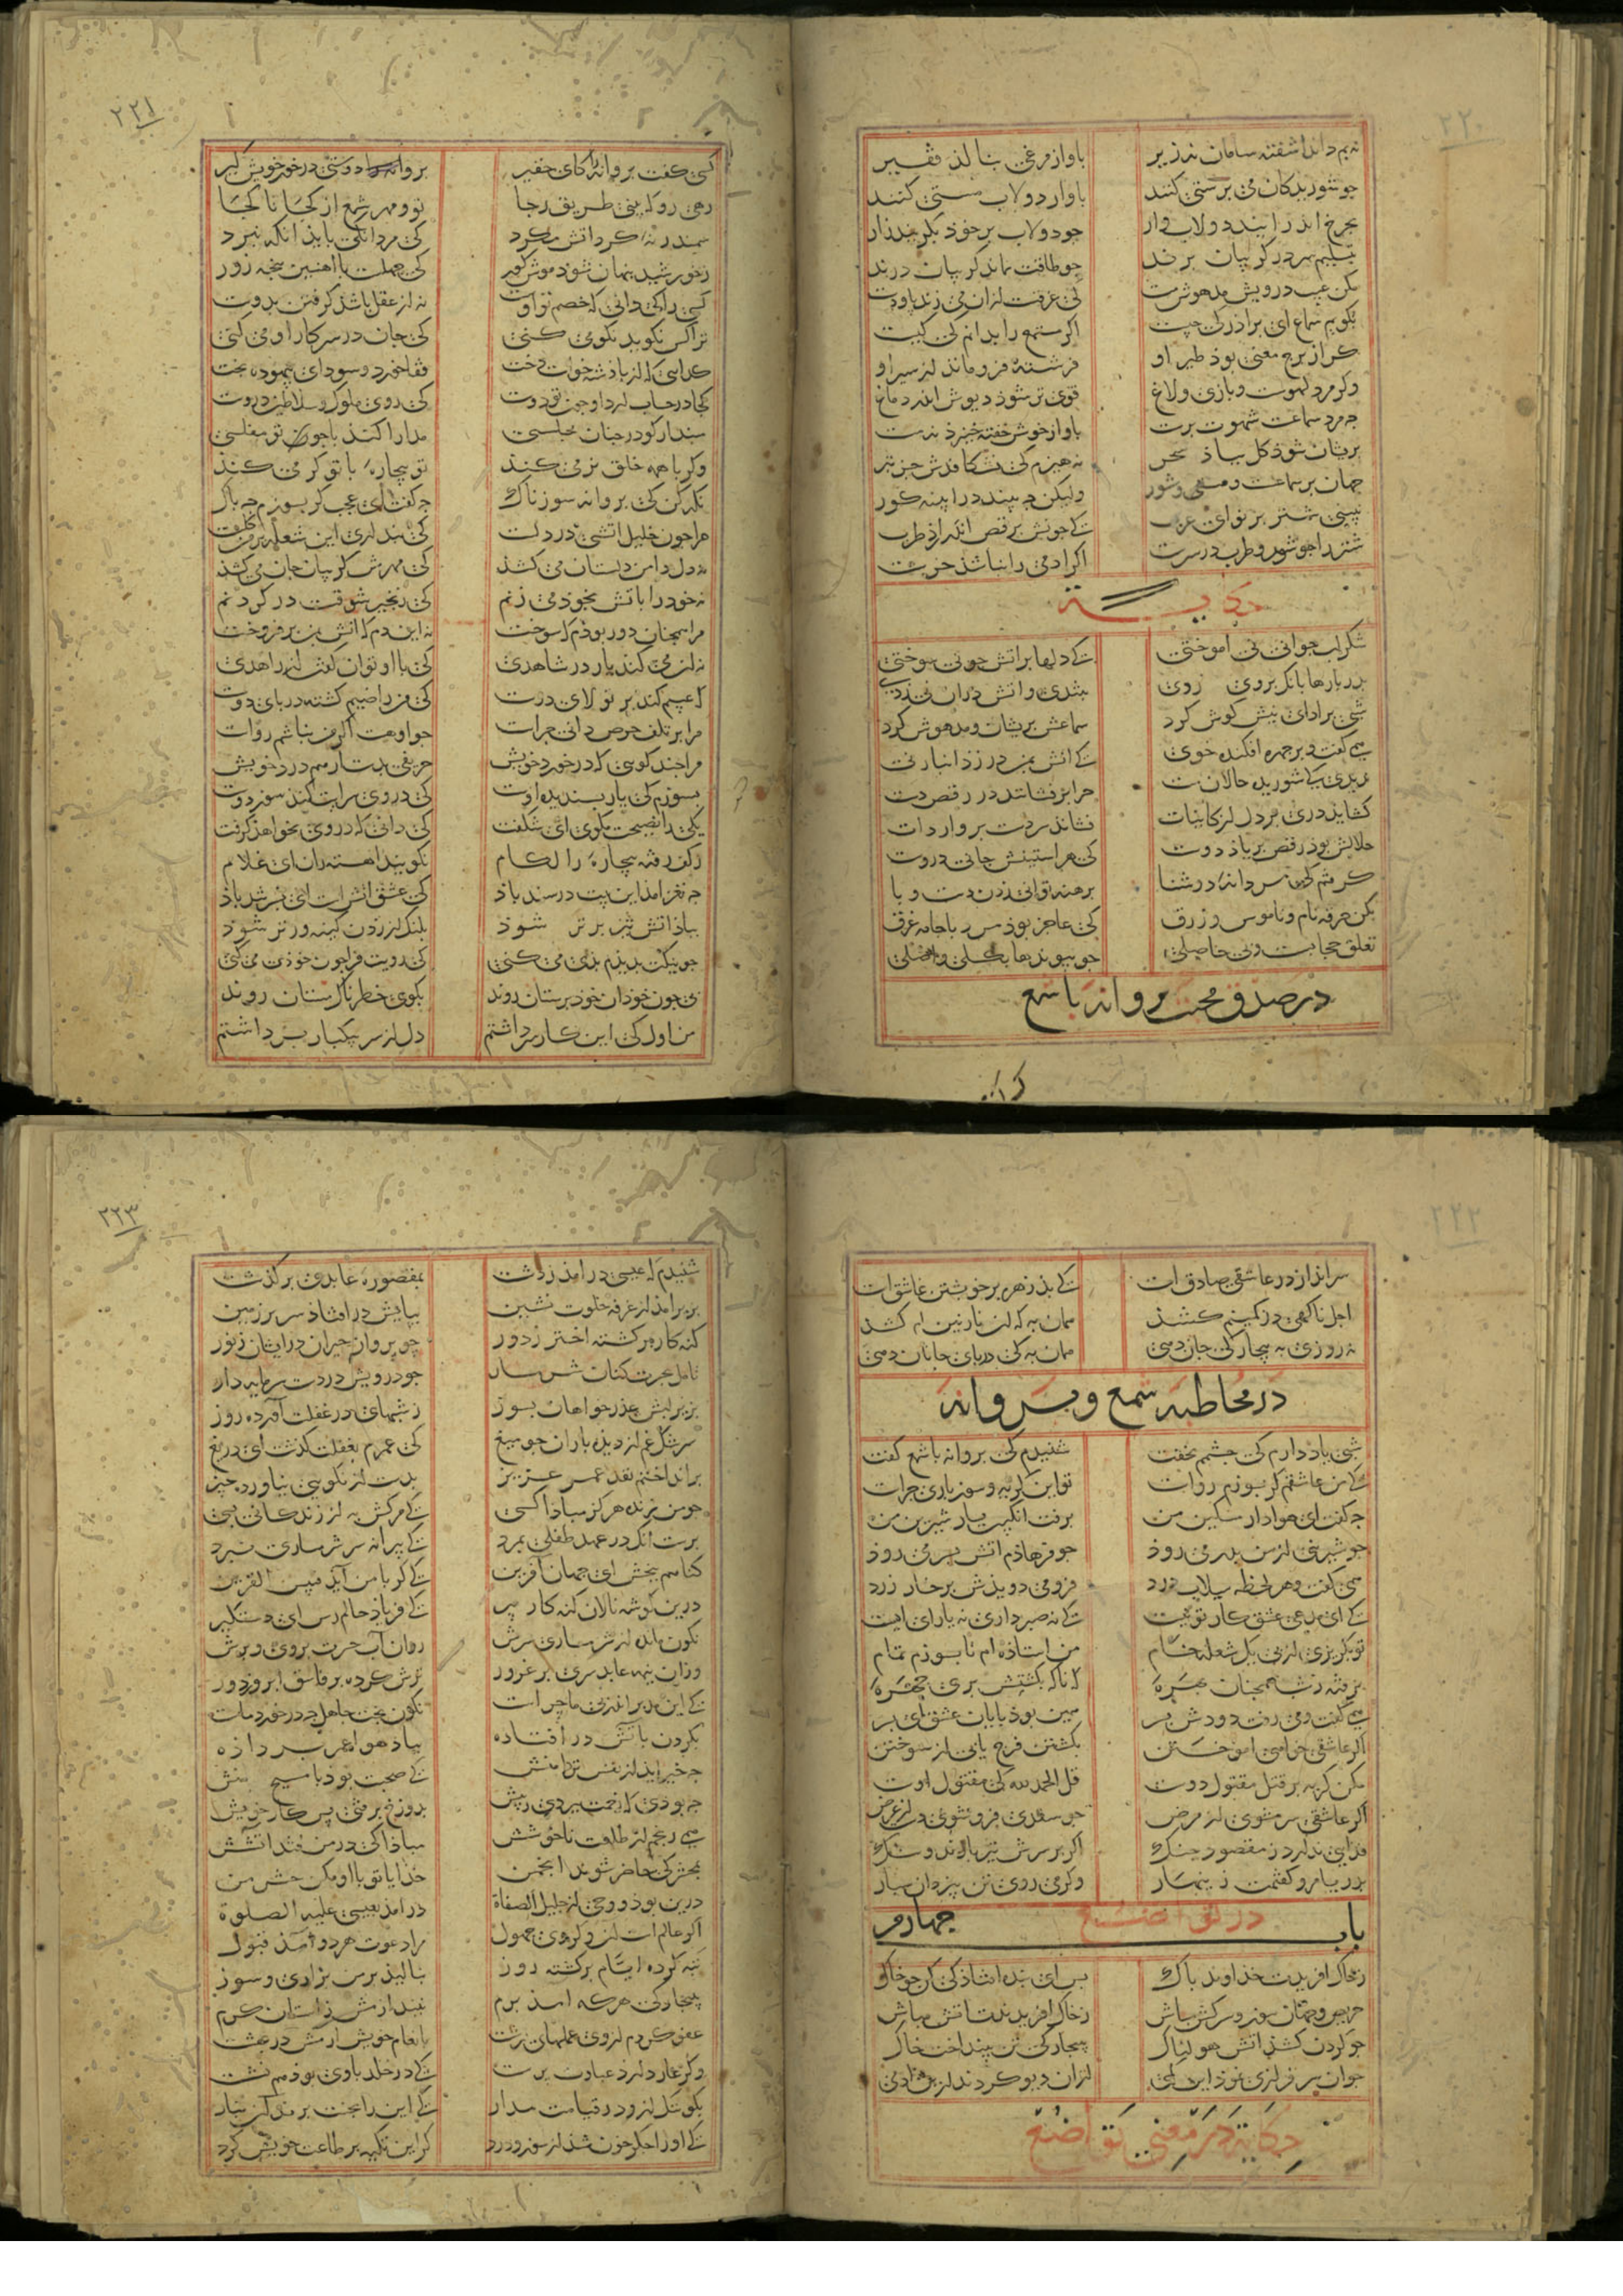 ۲۲۰
نه بم داند اشفته سامان نه زیر باواز مرغی بنالذ فقیر
جو شوریدکان می برستی کنند باواز دولاب مستی کنند
بجرخ اندر ایند دولاب وار جو دولاب بر خوذ بکریند زار
بتسلیم سر در کریبان برند جو طاقت نماند کریبان درند
مکن عیب درویش مدهوش مست کی غرقست ازان می زند با و دست
بکویم سماع ای براذر کی جیست اکر مستمع را بدانم کی کیست
کر از برج معنی بوذ طیر او فرشته فرو ماند از سیر او
وکر مرد لهوست و بازی و لاغ قوی تر شوذ دیوش اندر دماغ
جه مرد سماعست شهوت برست باواز خوش خفته خیزد نه مست
بریشان شوذ کل بباذ سحر نه هیزم کی نشکافدش جز تبر
جهان بر سماعست و مستی و شور ولیکن جه بیند در ایینه کور
نبینی شتر بر نوای عرب کی جونش برقص اندر ارذ طرب
شتر را جو شور و طرب در سرست اکر ادمی را نباشذ خرست
حکایــــــة
شکر لب جوانی نی اموختی کی دلها بر اتش جو نی سوختی
بدر بارها بانک بر وی زدی بتندی و اتش دران نی زدی
شبی بر ادای بسر کوش کرد سماعش بریشان و مدهوش کرد
همی کفت و بر جهره افکنده خوی کی اتش بمن در زد این بار نی
ندیدی کی شوریده حالان مست جرا بر فشانند در رقص دست
کشاید دری بر دل از کاینات فشاند سر دست بر واردات
حلالش بوذ رقص بر یاذ دوست کی هر استینش جانی دروست
کرفتم کی مردانه‌ٔ در شنا برهنه توانی زدن دست و با
بکن خرقه نام و ناموس و زرق کی عاجز بوذ مرد با جامه غرق
تعلق حجابست و بی حاصلی جو بیوندها بکسلی واصلی
در صدق محبت بروانه با شمع
کسی
۲۲۱
کسی کفت بروانه را کای حقیر برو دوستی در خور خویش کیر
رهی رو که بینی طریق رجا تو و مهر شمع از کجا تا کجا
سمندر نه‌ٔ کرد اتش مکرد کی مردانکی بایذ انکه نبرد
ز خورشید بنهان شوذ موش کور کی جهلست با اهنین بنجه زور
کسی را کی دانی که خصم تو اوست نه از عقل باشذ کرفتن بدوست
ترا کس نکوید نکو می کنی کی جان در سر کار او می کنی
کدایی که از باذشه خواست دخت قفا خورد و سودای بیهوده بخت
کجا در حساب ارد او جون تو دوست کی روی ملوک و سلاطین دروست
مبندار کو در جنان مجلسی مدارا کنذ با جو تو مفلسی
وکر با همه خلق نرمی کنذ تو بیچاره‌ٔ با تو کرمی کنذ
نکه کن کی بروانه سوزناک جه کفت ای عجب کر بسوزم جه باک
مرا جون خلیل اتشی در دلست کی بنداری این شعله بر من کلست
نه دل دامن دلستان می کشذ کی مهرش کریبان جان می کشذ
نه خوذ را باتش بخوذ می زنم کی زنجیر شوقست در کردنم
مرا همجنان دور بوذم که سوخت نه این دم که اتش بمن بر فروخت
نه ان می کند یار در شاهدی کی با او توان کفت از زاهدی
که عیبم کند بر تولای دوست کی من راضیم کشته در بای دوست
مرا بر تلف حرص دانی جراست جو او هست اکر من نباشم رواست
بسوزم کی یار بسندیده اوست کی در وی سرایت کنذ سوز دوست
مرا جند کویی که در خورد خویش حریفی بدست ار هم درد خویش
یکی را نصیحت مکوی ای شکفت کی دانی که در وی نخواهذ کرفت
ز کف رفته بیچاره‌ٔ را لکام نکویند اهسته ران ای غلام
جه نغز امذ این بیت در سندباذ کی عشق اتش است ای بسر بند باذ
بباذ اتش تیز برتر شوذ بلنک از زدن کینه ورتر شوذ
جو نیکت بدیذم بدی می کنی کی رویت فرا جون خوذی می کنی
بی جون خوذان خوذ برستان روند بکوی خطرناک مستان روند
من اول کی این کار سر داشتم دل از سر بیکبار برداشتم
۲۲۲
سر انداز در عاشقی صادق است کی بد زهره بر خویشتن عاشق است
اجل ناکهی در کمینم کشذ همان به که ان نازنینم کشذ
نه روزی به بیچارکی جان دهی همان به کی در بای جانان دهی
در مخاطبه شمع و بروانه
شبی یاد دارم کی جشمم نخفت شنیدم کی بروانه با شمع کفت
کی من عاشقم کر بسوزم رواست تو این کریه و سوز باری جراست
بکفت ای هوادار مسکین من برفت انکبین یار شیرین من
جو شیرینی از من بدر می روذ جو فرهاذم اتش بسر می روذ
همی کفت و هر لحظه سیلاب درد فرو می دویذش بر رخسار زرد
کی ای مدعی عشق کار تو نیست کی نه صبر داری نه یارای ایست
تو بکریزی از بیش یک شعله خام من استاذه ام تا بسوزم تمام
نرفته ز شب همجنان بهره‌ٔ که ناکه بکشتش بری جهره‌ٔ
همی کفت و می رفت دودش بسر همین بوذ بایان عشق ای بسر
اکر عاشقی خواهی اموختن بکشتن فرج یابی از سوختن
مکن کریه بر قبر مقتول دوست قل الحمد لله کی مقتول اوست
اکر عاشقی سر مشوی از مرض جو سعدی فرو شوی دست از غرض
فدایی ندارد ز مقصود جنک اکر بر سرش تیر بارند و سنک
بدریا مرو کفتمت زینهار وکر می روی تن بیزدان سبار
باب جهارم در تواضع
ز خاک افریدت خذاوند باک بس ای بنده افتاذکی کن جو خاک
حریص و جهان سوز و سرکش مباش ز خاک افریدندت اتش مباش
جو کردن کشید اتش هولناک ببیجارکی تن بینداخت خاک
جو ان سر فرازی نموذ این کمی ازان دیو کردند ازین ادمی
حکایة در معنی تواضع
۲۲۳
شنیدم که عیسی در امذ ز دشت بمقصوره عابدی بر کذشت
بزیر امذ از غرفه خلوت نشین ببایش در افتاذ سر بر زمین
کنه کار برکشته اختر ز دور جو بروانه حیران در ایشان ز نور
تامل بحسرت کنان شرمسار جو درویش در دست سرمایه دار
بزیر لبش عذر خواهان بسوز ز شبهای در غفلت آورده روز
سرشک غم از دیده باران جو میغ کی عمرم بغفلت کذشت ای دریغ
برانداختم نقد عمر عزیز بدست از نکویی نیاورده جیز
جو من زنده هرکز مباذا کسی کی مرکش به از زندکانی بسی
برست انک در عهد طفلی بمرد کی بیرانه سر شرمساری نبرد
کناهم ببخش ای جهان آفرین کی کر با من آید فبئس القرین
درین کوشه نالان کنه کار بیر کی فریاذ حالم رس ای دستکیر
نکون مانده از شرمساری سرش روان آب حسرت بروی و برش
وزان نیمه عابد سری بر غرور ترش کرده بر فاسق ابرو ز دور
کی این مدبر اندر بی ما جراست نکون بخت جاهل جه در خورد ماست
بکردن باتش در افتاده بباذ هوا عمر بر داذه
جه خیر اید از نفس تر دامنش کی صحبت بوذ با مسیح و منش
جه بوذی که زحمت ببردی ز بیش بدوزخ برفتی بس کار خویش
همی رنجم از طلعت ناخوشش مباذا کی در من فتد اتشش
بمحشر کی حاضر شوند انجمن خذایا تو با او مکن حشر من
درین بوذ و وحی از جلیل الصفاة در امذ بعیسی علیه الصلوة
کی کر عالم است ان وکر وی جهول مرا دعوت هر دو آمذ قبول
تبه کرده ایام برکشته روز بنالیذ بر من بزاری و سوز
ببیجارکی هر که امذ برم نیندازمش ز استان کرم
عفو کردم از وی عملهای زشت بانعام خویش ارمش در بهشت
وکر عار دارد عبادت برست کی در خلد با وی بوذ هم نشست
بکو ننک ازو در قیامت مدار کی ان را بجنت برند این بنار
کی او را جکر خون شذ از سوز و درد کر این تکیه بر طاعت خویش کرد